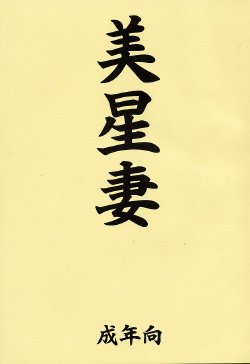 美星妻
成年向